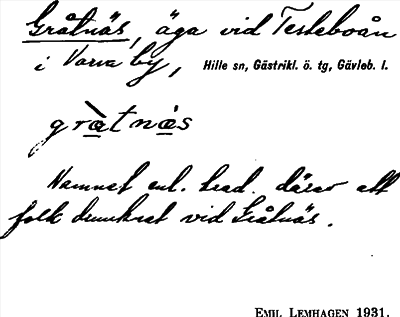 Gråtnäs, äga vid Testeboån
i Varva by, Hille sn, Gästrikl. ö. tg, Gävleb. l.
gràtnás
Namnet enl. trad. därav att
folk drunknat vid Gråtnäs.
EMIL LEMHAGEN 1931.